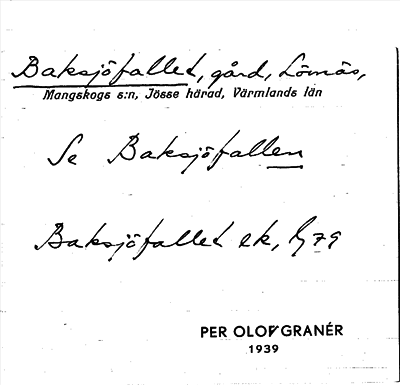 Baksjöfallet, gård, Lömås,
Mangskogs s:n, Jösse härad, Värmlands län
Se Baksjöfallen
Baksjöfallet ek, 79
PER OLOF GRANÉR
1939